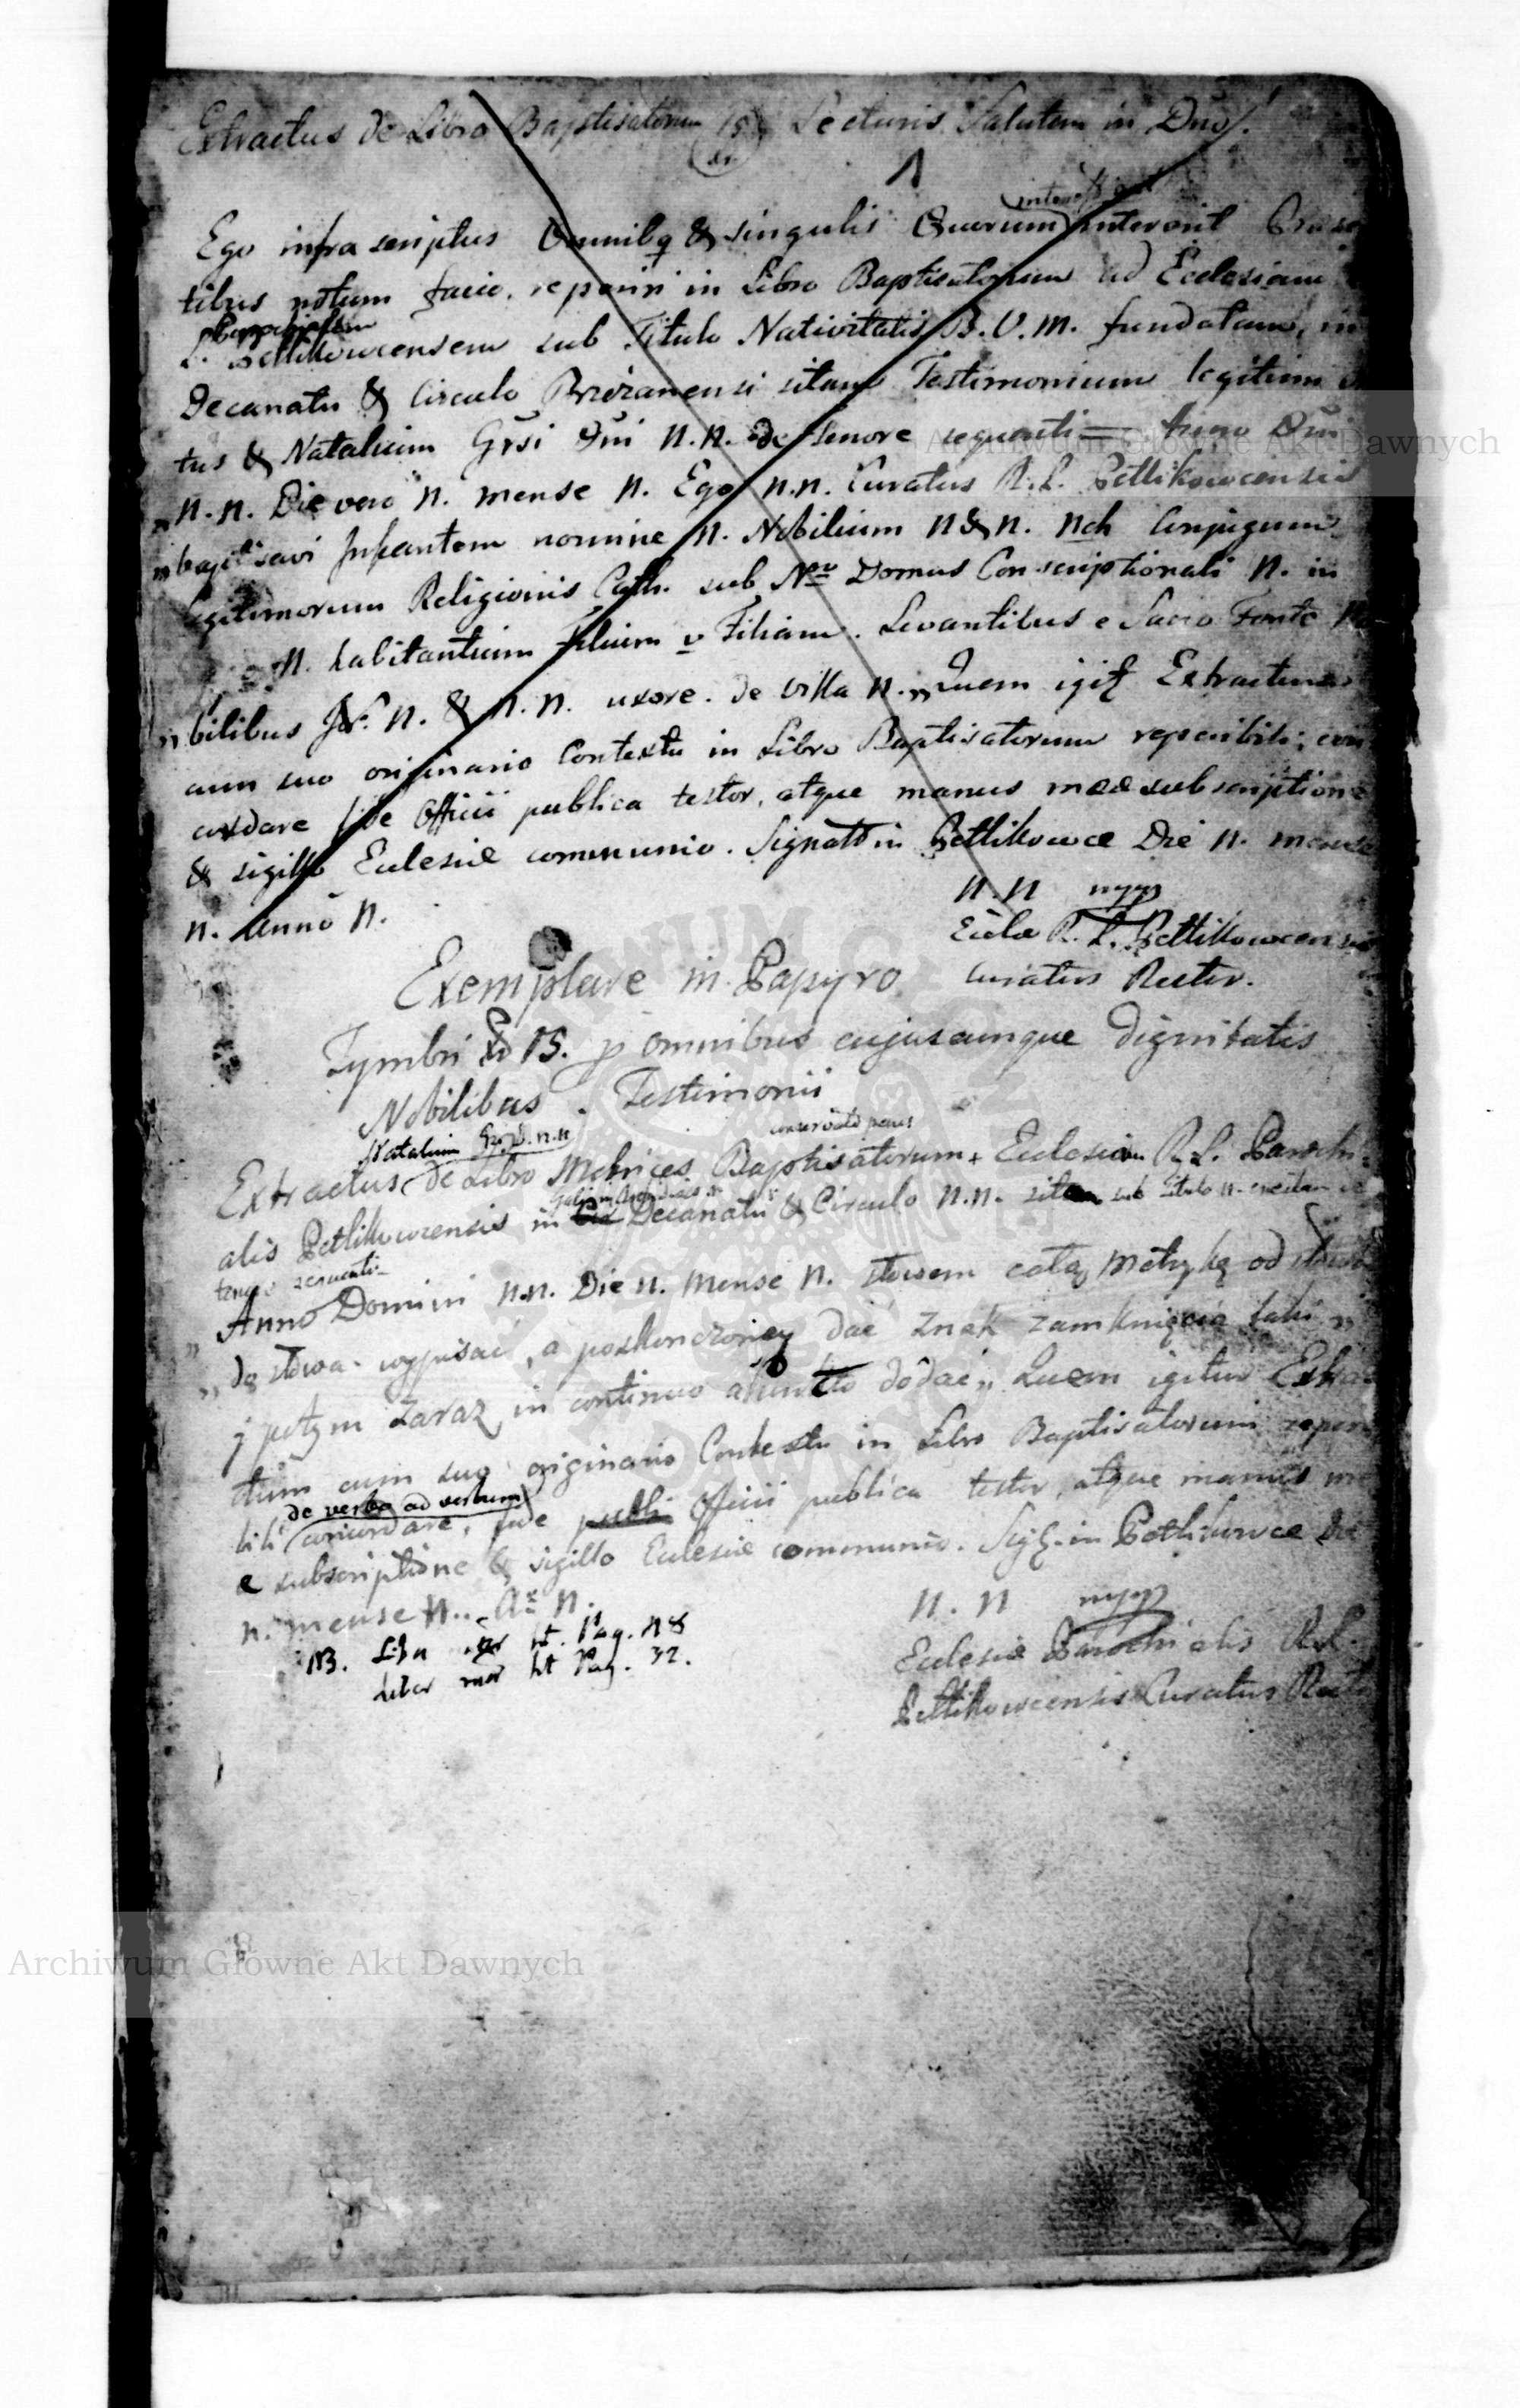 Extractus de Libro Baptisatorum 15 xr. Lecturis Salutem in Dno.
1
Ego infra scriptus Omnibq & singulis Quorum intererit Praesen
tibus notum facio. reperiri in Libro Baptisatorum ad Ecclesiam
Parochialem
L. Petlikowcensem sub Titulo Nativitatis B.V.M. fundatam, in
Decanatu & Circulo Brzezanensi sitam Testimonium legitimi
tus & Natalium Grsi Dni N.N. de tenore sequenti = Anno Dni
„ N.N. Die vero N. mense N. Ego N.N. Curatus R.L. Petlikowcensis
„ baptisavi Infantem nomine N. Nobilium N & N. Nch Conjugum
legitimorum Religionis Cath. sub Nro Domus Conscriptionali N. in
N. habitantium Filium v Filiam. Levantibus e Sacro Fonte No
„ bilibus N. & N.N. uxore. de villa N. „ Quem igit Extractum
cum suo originario Contextu in Libro Baptisatorum reperibili, con
cordare fide Officii publica testor, atque manus meae subscriptione
& sigillo Ecclesiae communio. Signatt in Petlikowce Die N. mense
N. Anno N.
N.N mpp
Ecclae R. L. Petlikowcensis
Curatus Rector.
Exemplare in Papyro
Tymbri Xr 15. p omnibus cujuscunque Dignitatis
Nobilibus. Testimonii
Natalium Grsi D. N.N conservato penes
Extractus de Libro Metrices Baptisatorum + Ecclesiam R.L. Parochi
alis Petlikowcensis in Decanatu & Circulo N.N. sitam sub Titulo N. erectam de
tenore sequenti
„ Anno Domini N.N. Die N. Mense N. słowem całą Metrykę od słowa
„ do słowa wypisać, a poskończoney dać znak zamknięcia taki „
j potym zaraz in continuo dodać „ Quem igitur Extrac
tum cum suo originario Contextu in Libro Baptisatorum reperi
de verbo ad verbum
bili concordare, fide publi Officii publica testor, atque manus me
e subscriptione & sigillo Ecclesiae communio. Sig. in Petlikowce Die
N. mense N. Ao N.
N.N mpp
NB. Pag. 48
Liber mor Pag. 32.
Ecclesiae Parochialis R.L.
Petlikowcensis Curatus Rect
Archiwum Główne Akt Dawnych
Archiwum Główne Akt Dawnych